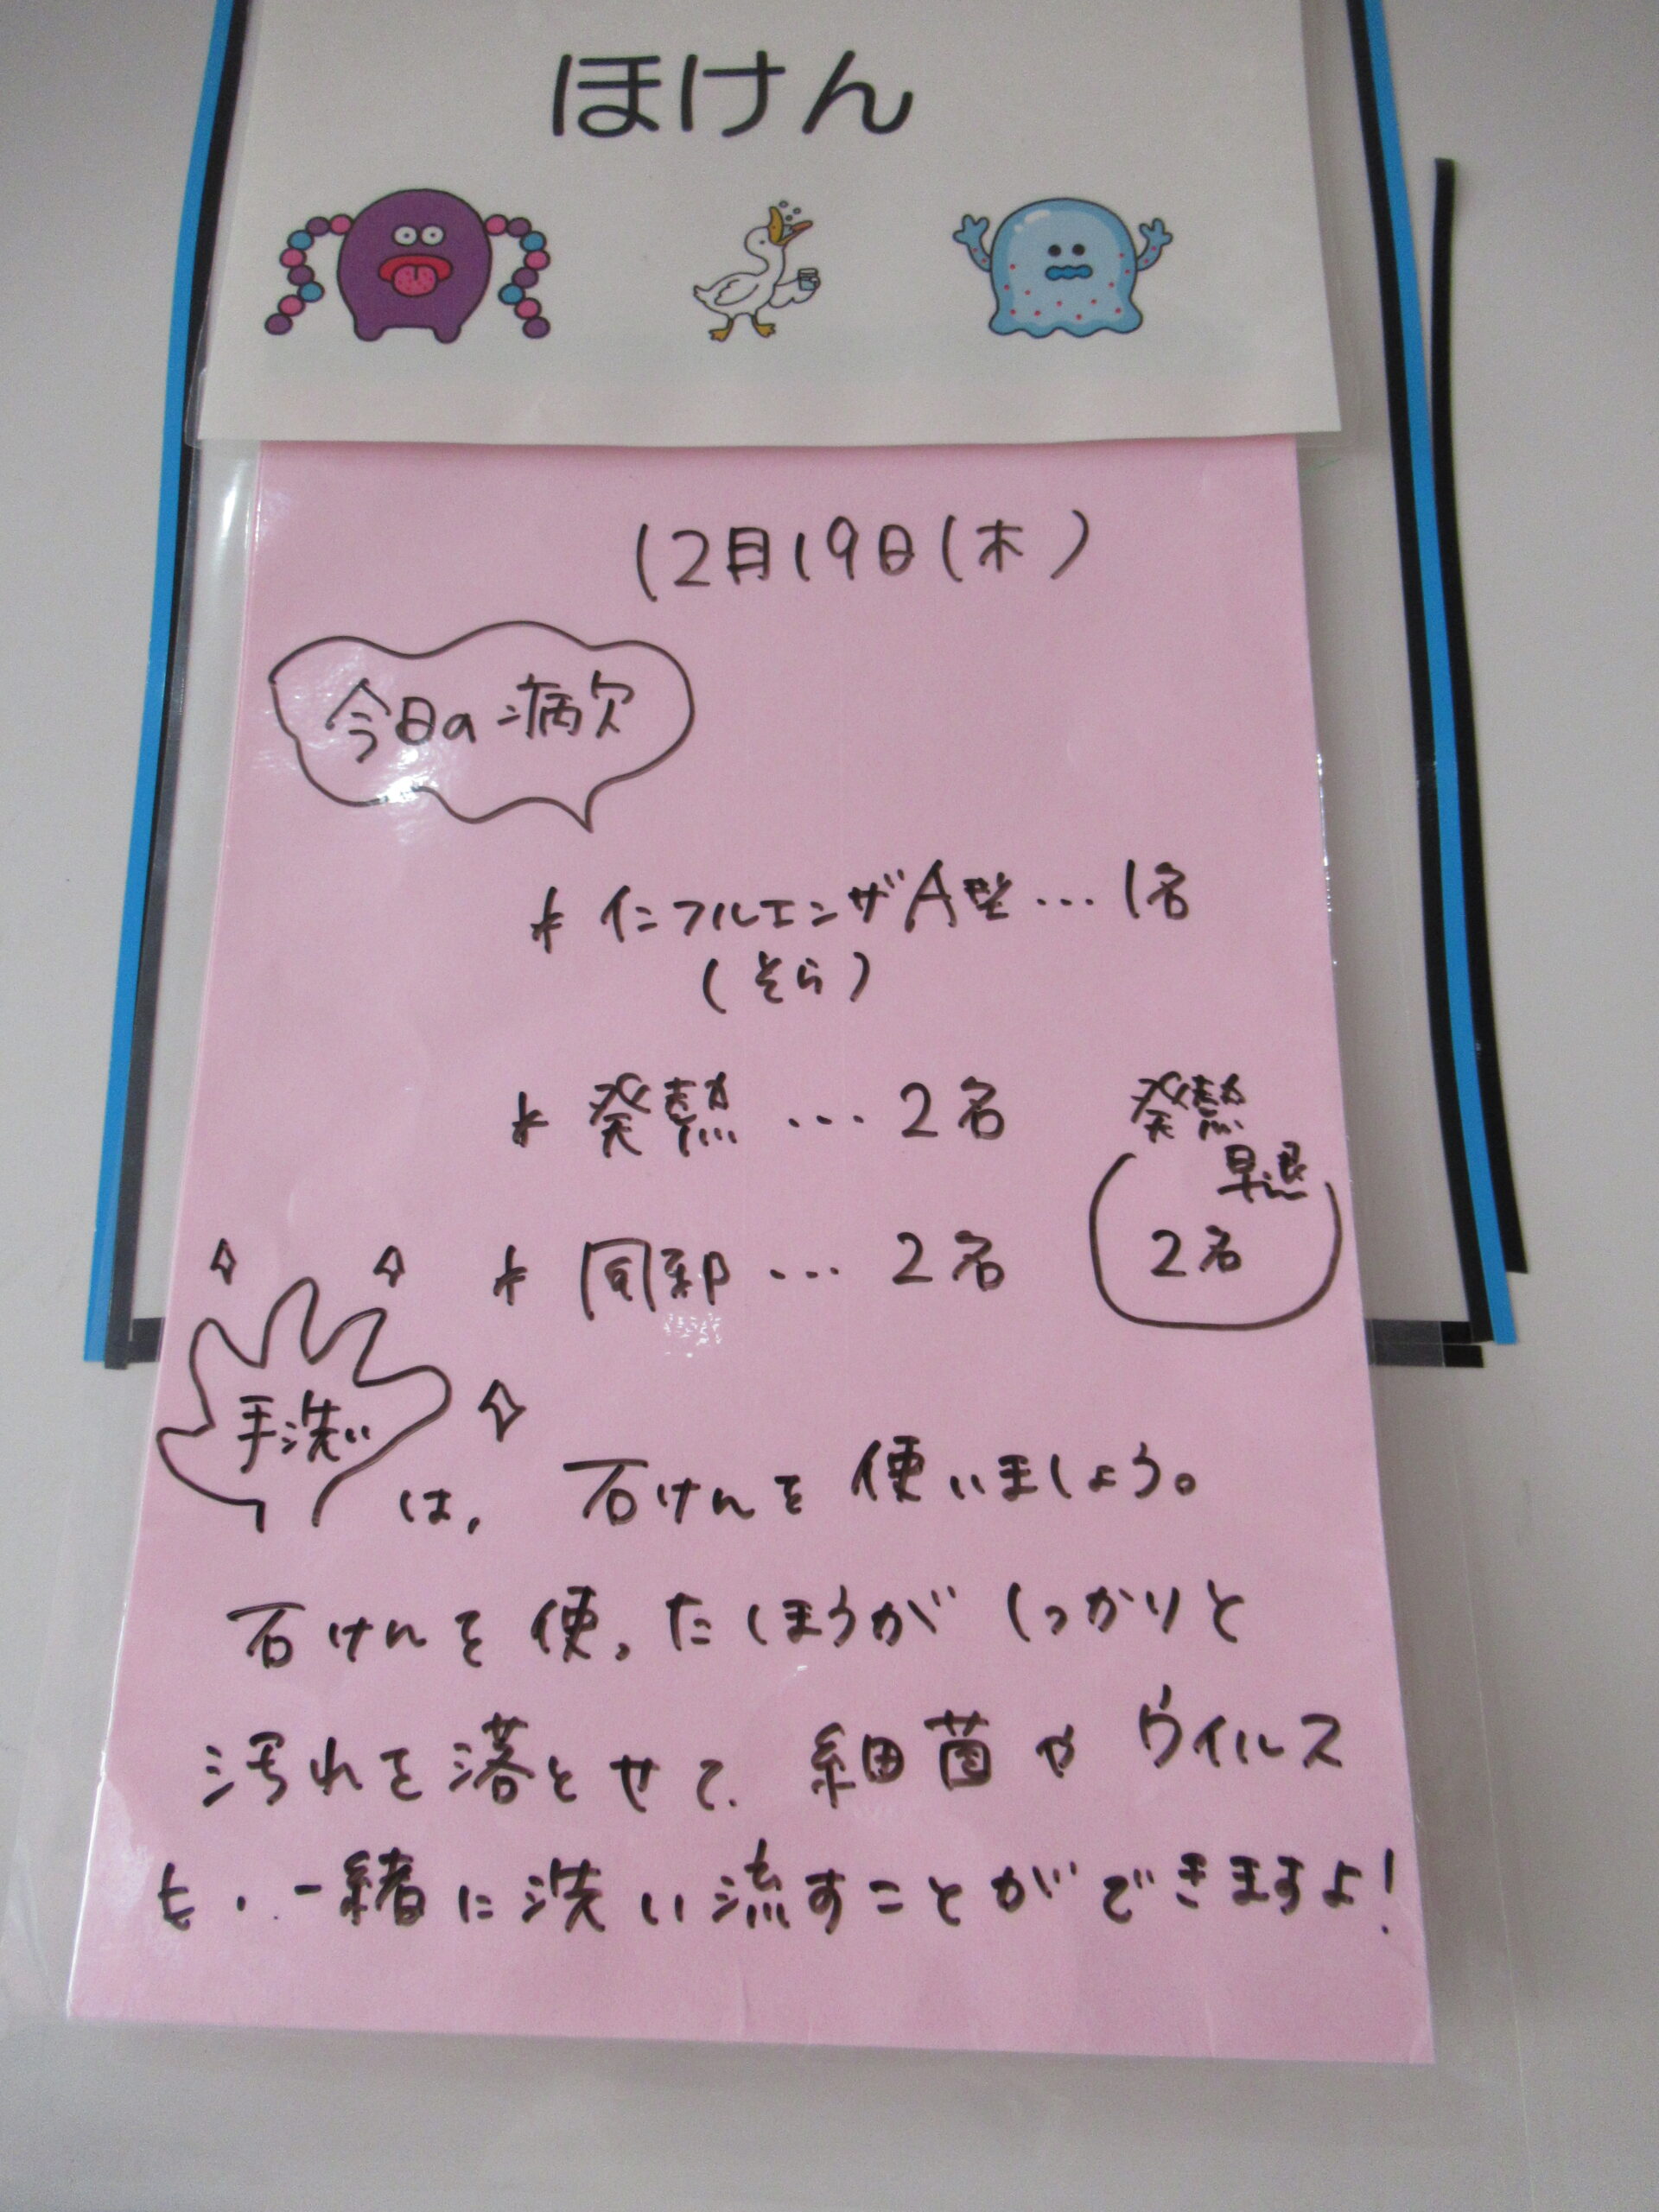 ほけん
12月19日(木)
今日の病欠
* インフルエンザA型…1名
(そら)
* 発熱…2名
発熱
早退
2名
* 同部…2名
手洗い
は、石けんを使いましょう。
石けんを使ったほうがしっかりと
汚れを落とせて、細菌やウイルス
も、一緒に洗い流すことができますよ!